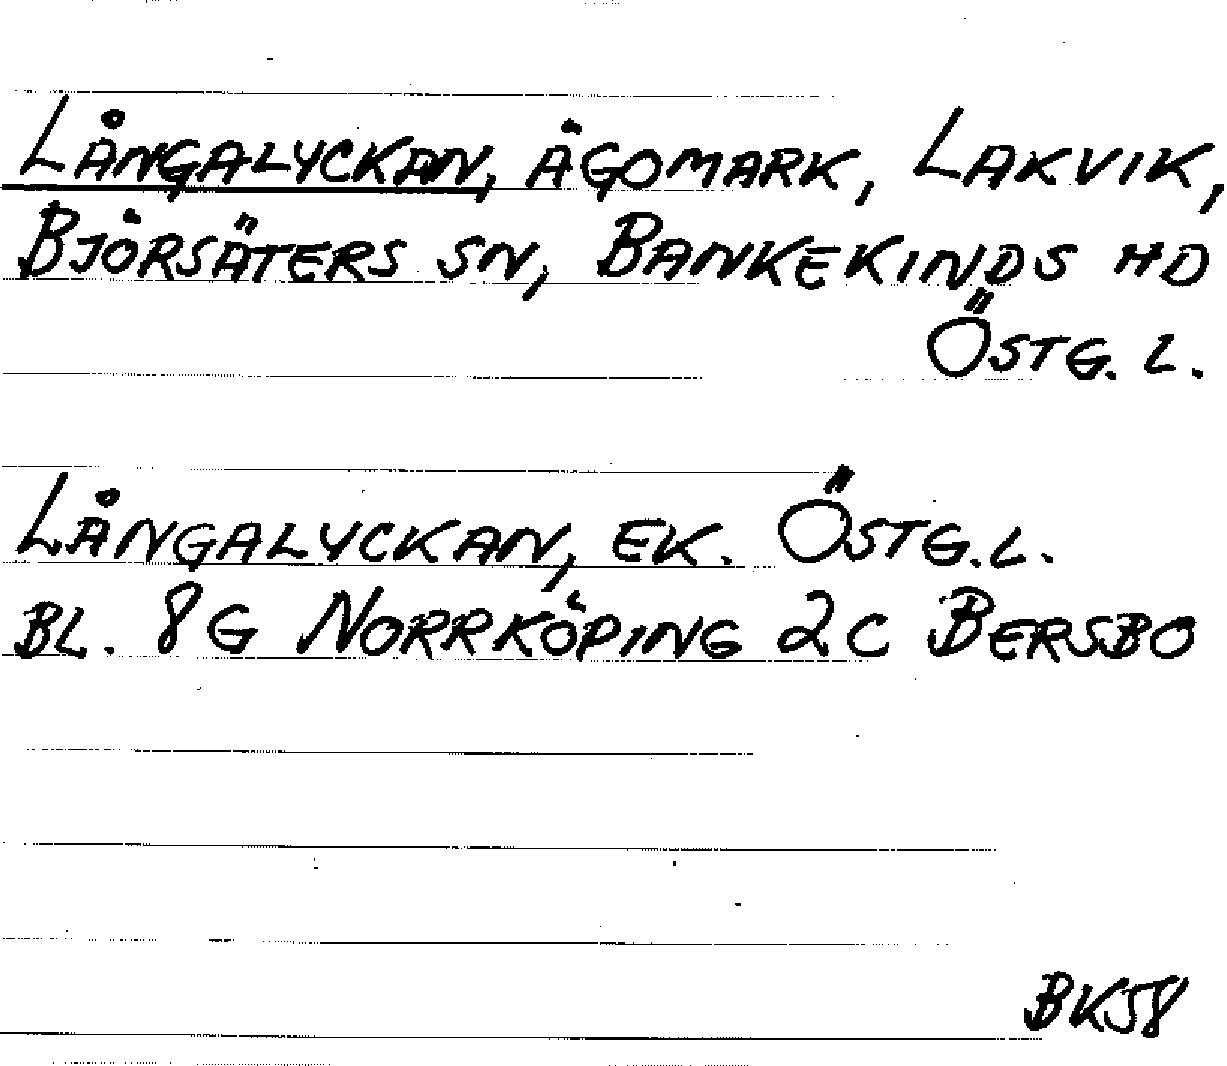 LÅNGALYCKAN, ÄGOMARK, LAKVIK,
BJÖRSÄTERS SN, BANKEKINDS HD
ÖSTG. L.
LÅNGALYCKAN, EK. ÖSTG.L.
BL. 8G NORRKÖPING 2C BERSBO
BK58